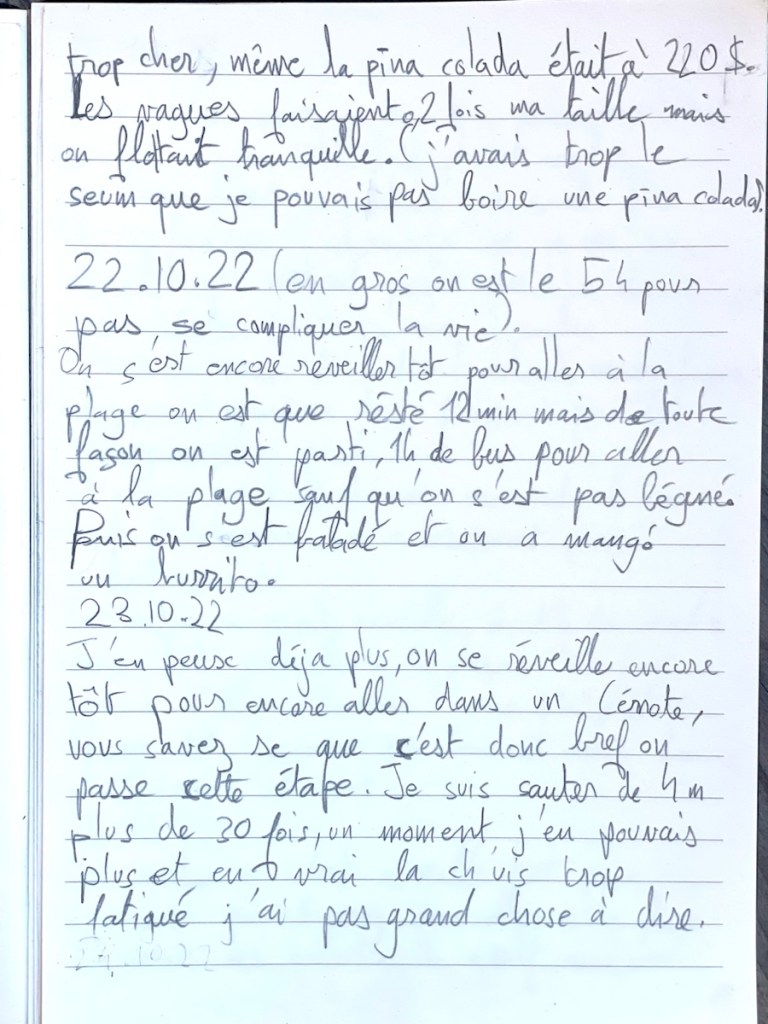 trop cher, même la pina colada était à 220$.
Les vagues faisaient 2 fois ma taille mais
on flottait tranquille. (j'avais trop le
seum que je pouvais pas boire une pina colada).
22.10.22 (en gros on est le 5h pour
pas se compliquer la vie).
On s'est encore réveiller tôt pour aller à la
plage on est que résté 12 min mais de toute
façon on est parti, 1h de bus pour aller
à la plage sauf qu'on s'est pas légné.
Puis on s'est baladé et on a mangé
un burrito.
23.10.22
J'en peux déja plus, on se réveille encore
tôt pour encore aller dans un Cénote,
vous savez se que c'est donc bref on
passe cette étape. Je suis sauter de 4m
plus de 30 fois, un moment j'en pouvais
plus et en vrai la ch'uis trop
fatiqué j'ai pas grand chose à dire.
24.10.22